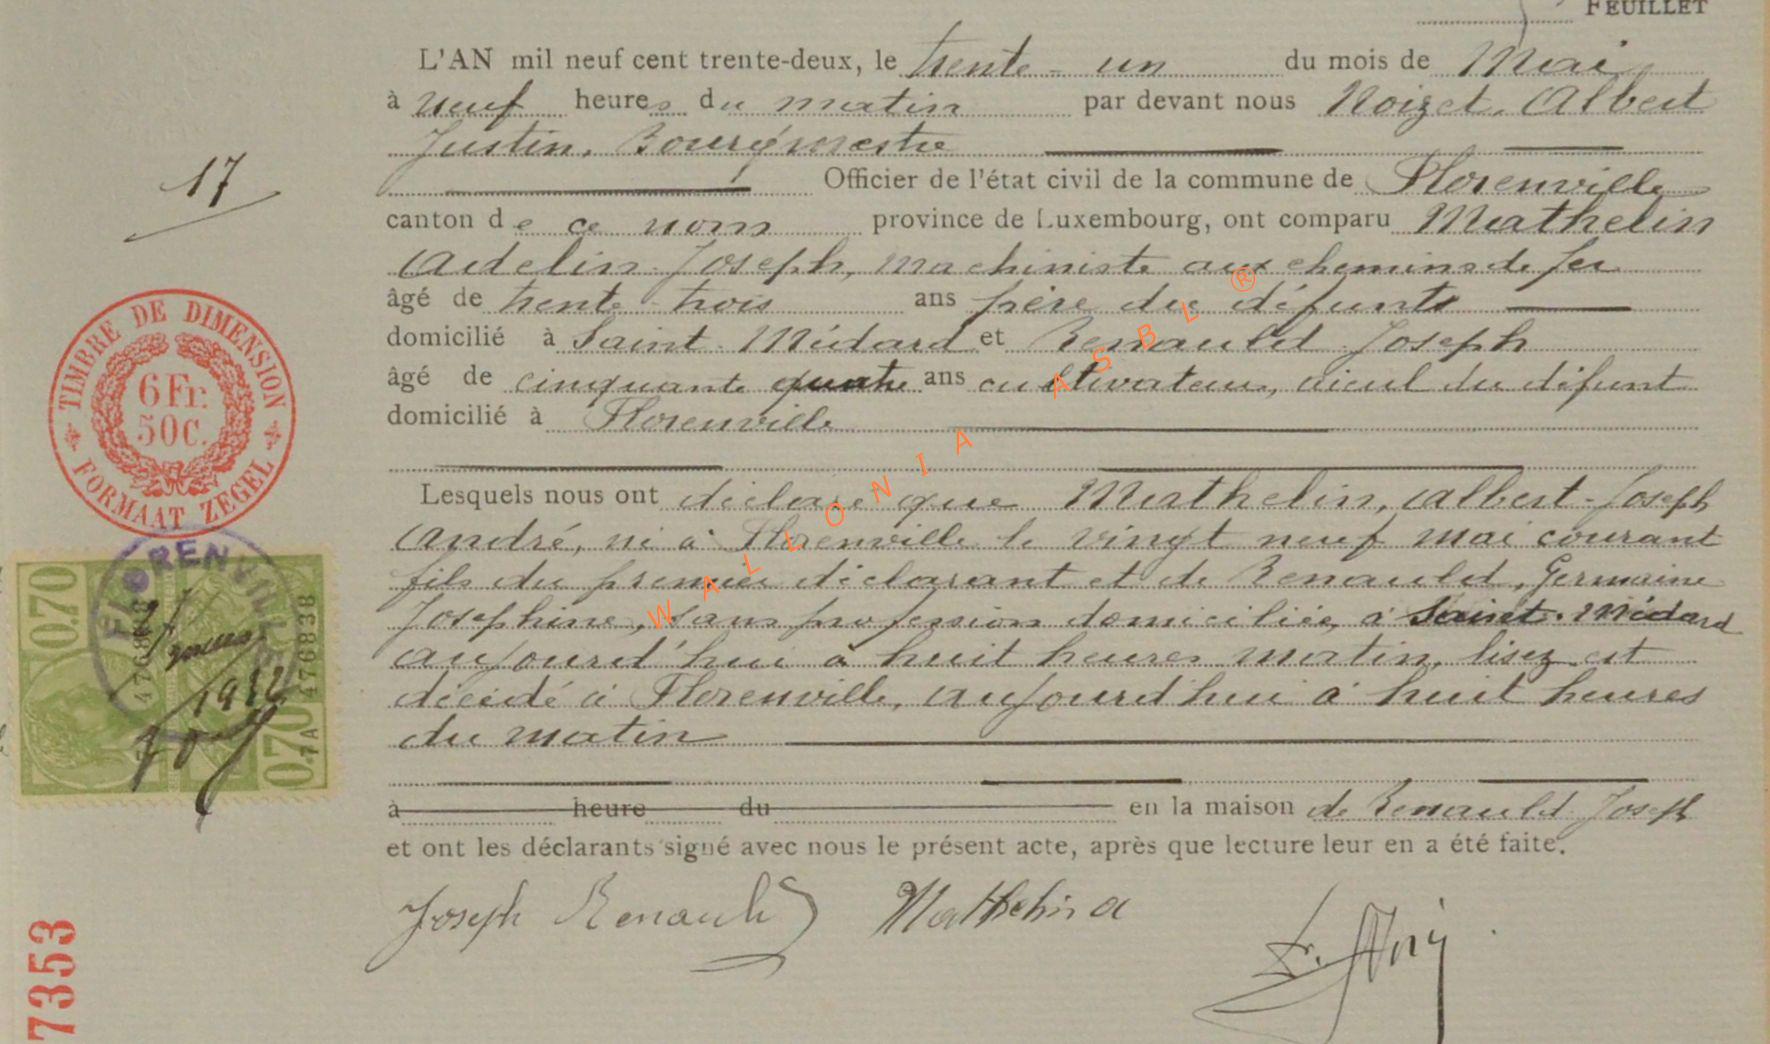 FEUILLET
L'AN mil neuf cent trente-deux, le trente-un du mois de Mai
à neuf heures du matin par devant nous Noizet, Albert
Justin, Bourgmestre
17
Officier de l'état civil de la commune de Florenville
canton de ce nom province de Luxembourg, ont comparu Mathelin
Adelin Joseph, machiniste aux chemins de fer
âgé de trente-trois ans père du défunt
domicilié à Saint-Médard et Renauld Joseph
âgé de cinquante quatre ans cultivateur, aïeul du défunt
domicilié à Florenville
Lesquels nous ont déclaré que Mathelin, Albert-Joseph
André, né à Florenville le vingt neuf mai courant
fils du premier déclarant et de Renauld, Germaine
Joséphine, sans profession domiciliée à Saint-Médard
aujourd'hui à huit heures matin, lisez est
décédé à Florenville, aujourd'hui à huit heures
du matin
à heure du en la maison de Renauld Joseph
et ont les déclarants signé avec nous le présent acte, après que lecture leur en a été faite.
Joseph Renauld Mathelin a
TIMBRE DE DIMENSION
6 Fr.
50 C.
FORMAAT ZEGEL
FLORENVILLE
0.70
476838
1932
0.70
7353
WALLONIA ASBL ®